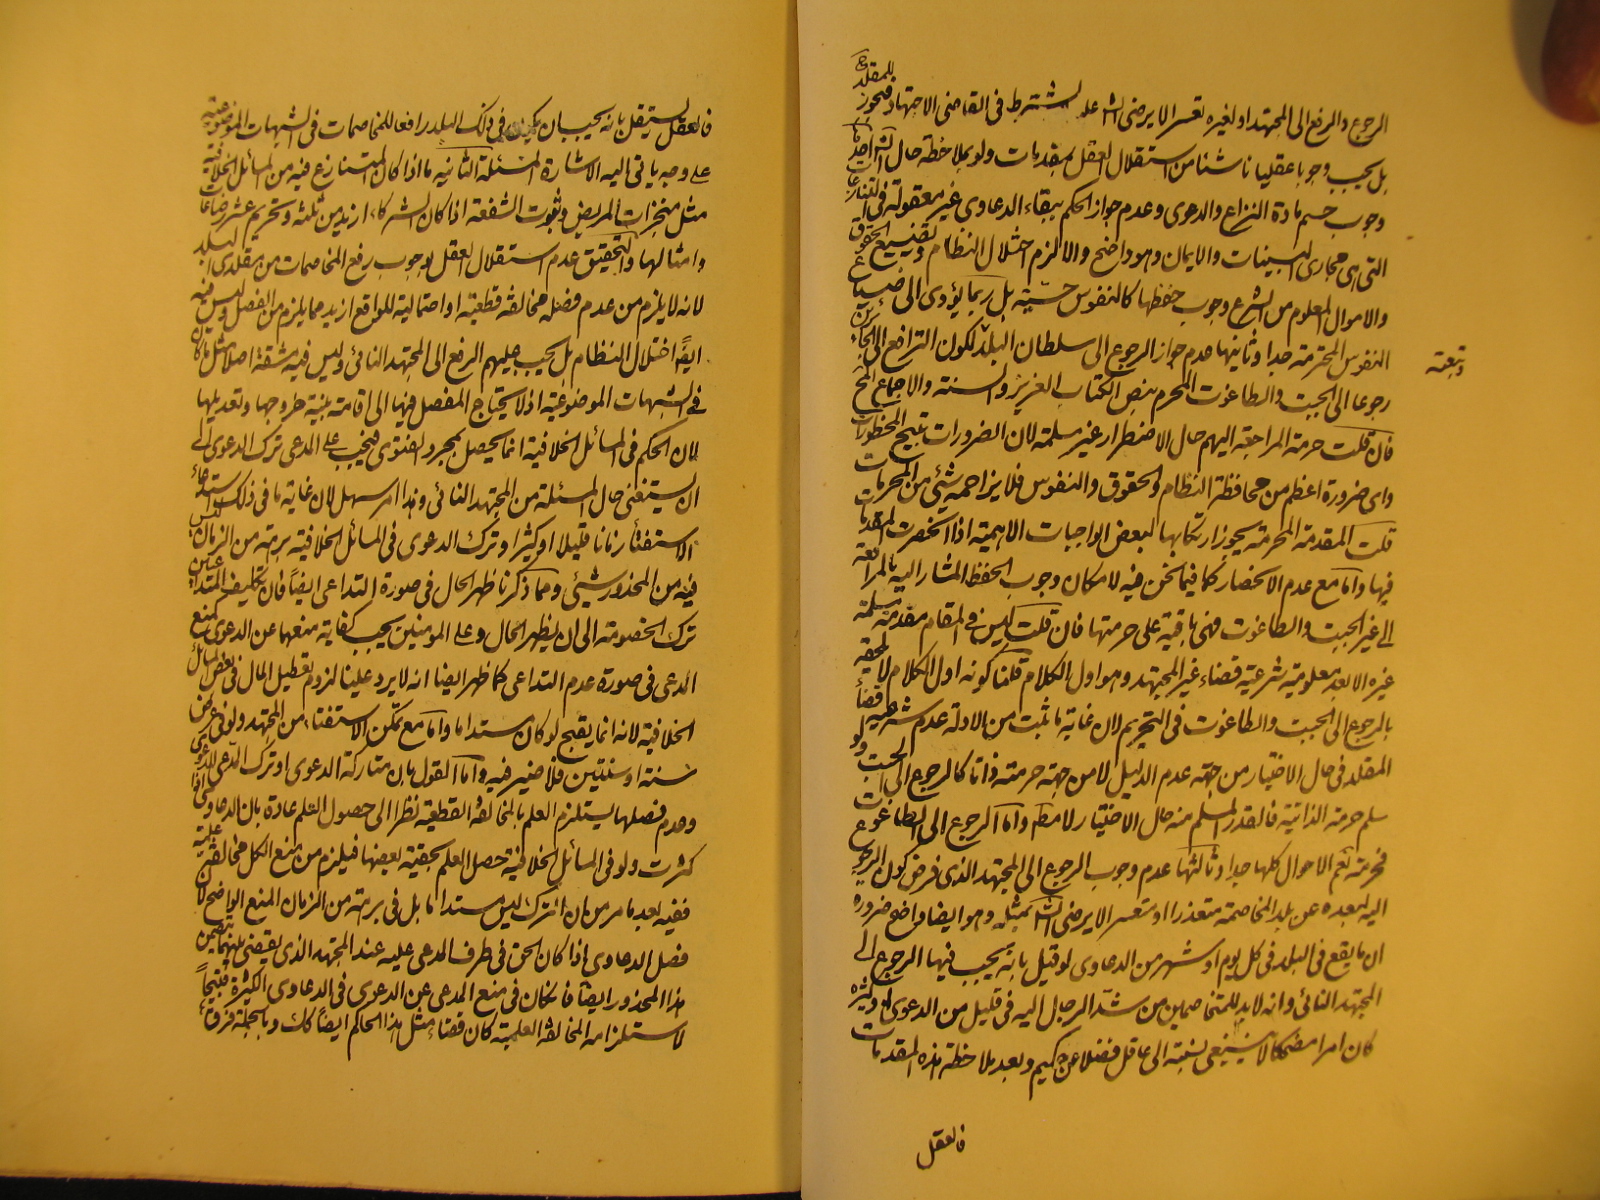 الرجوع والرفع الى المجتهد او لغيره تعسر الا يرضى الش عله لشترط فى القاضى الاجتهاد فيجوز للمقلد
بل يجب وجوبا عقليا ناشئا من استقلال العقل بمقدمات ولو بملاحظة حال الش احديها
وجوب حسم مادة النزاع والدعوى وعدم جواز الحكم ببقاء الدعاوى غير معقولة فى التنازع
التى هى مجارى البينات والايمان وهو واضح والا لزم اختلال النظام وتضييع الحقوق
والاموال المعلوم من الشرع وجوب حفظها كالنفوس حسبة بل ربما يؤدى الى ضياع
النفوس المحترمة جدا وثانيها عدم جواز الرجوع الى سلطان البلد لكون الترافع الى الجائر
وتبعته
رجوعا الى الجبت والطاغوت المحرم بنص الكتاب العزيز والسنة والاجماع
فان قلت حرمة المراجعة اليهم حال الاضطرار غير مسلمة لان الضرورات تبيح المحظورات
واى ضرورة اعظم من محافظة النظام والحقوق والنفوس فلا يزاحمه شئ من المحرمات
قلت المقدمة المحرمة يجوز ارتكابها لبعض الواجبات الاهمية اذا انحصرت المقدمات
فيها واما مع عدم الانحصار كما فيما نحن فيه لامكان وجوب الحفظ المشار اليه بالمرافعة
الى غير الجبت والطاغوت فهى باقية على حرمتها فان قلت ليس فى المقام مقدمة مسلمة
غيره الا بعد معلومية شرعية قضاء غير المجتهد وهو اول الكلام قلنا كونه اول الكلام لا يلحقه
بالرجوع الى الجبت والطاغوت فى التحريم لان غاية ما ثبت من الادلة عدم شرعية قضاء
المقلد فى حال الاختيار من جهة عدم الدليل لا من جهة حرمته ذاتا كالرجوع الى الجبت ولو
سلم حرمته الذاتية فالقدر المسلم منه حال الاختيار لا مطم واما الرجوع الى الطاغوت
فحرمته تعم الاحوال كلها جدا وثالثها عدم وجوب الرجوع الى المجتهد الذى فرض كون الرجوع
اليه لبعده عن بلد المخاصمة متعذرا او متعسرا لا يرضى الش بمثله وهو ايضا واضح ضرورة
ان ما يقع فى البلد فى كل يوم او شهر من الدعاوى لو قيل بانه يجب فيها الرجوع الى
المجتهد النائى وانه لابد للمتخاصمين من شد الرحال اليه فى قليل من الدعوى او كثيره
كان امرا مضحكا لا ينبغى نسبته الى عاقل فضلا عن حكيم وبعد ملاحظة هذه المقدمات
فالعقل
فالعقل يستقل بانه يجب ان يكون فى ذلك البلد رافعا للمخاصمات فى الشبهات الموضوعية
على وجه ياتى اليه الاشارة المسئلة الثانيه ما اذا كان المتنازع فيه من المسائل الخلافية
مثل منجزات المريض وثبوت الشفعة اذا كان الشركاء ازيد من ثلثة وتحريم عشر رضعات
وامثالها والتحقيق عدم استقلال العقل بوجوب رفع المخاصمات من مقلدى البلد
لانه لا يلزم من عدم فضله مخالفة قطعية او احتمالية للواقع ازيد مما يلزم من الفصل وليس فيه
ايضا اختلال النظام بل يجب عليهم الرفع الى المجتهد النائى وليس فيه مشقة اصلا مثل ما كان
فى الشبهات الموضوعية اذ لا يحتاج المفصل فيها الى اقامة بينة جروحها وتعديلها
لان الحكم فى المسائل الخلافية انما يحصل بمجرد الفتوى فيجب على المدعى ترك الدعوى الى
ان يستفتى حال المسئلة من المجتهد النائى وهذا امر سهل لان غاية ما فى ذلك استدعاء
الاستفتاء زمانا قليلا او كثيرا وترك الدعوى فى المسائل الخلافية برهة من الزمان ليس
فيه من المحذور شئ ومما ذكرنا ظهر الحال فى صورة التداعى ايضا فان تكليف المتداعيين
ترك الخصومة الى ان يظهر الحال وعلى المومنين يجب كفاية منعهما عن الدعوى كمنع
المدعى فى صورة عدم التداعى كما ظهر ايضا انه لا يرد علينا لزوم تعطيل المال فى بعض المسائل
الخلافية لانه انما يقبح لو كان مستداما واما مع تمكن الاستفتاء من المجتهد ولو فى عرض
سنة او سنتين فلا ضير فيه واما القول بان متاركة الدعوى او ترك المدعى للدعوى
وعدم فصلها يستلزم العلم بالمخالفة القطعية نظرا الى حصول العلم عادة بان الدعاوى اذا
كثرت ولو فى المسائل الخلافية حصل العلم بحقية بعضها فيلزم من منع الكل مخالفة علمية
ففيه بعد ما مر من ان الترك ليس مستداما بل فى برهة من الزمان المنع الواضح لان
فصل الدعاوى اذا كان الحق فى طرف المدعى عليه عند المجتهد الذى يقضى بينهما يتضمن
هذا المحذور ايضا فان كان فى منع المدعى عن الدعوى فى الدعاوى الكثيرة قبيحا
لاستلزامه المخالفة العلمية كان قضاء مثل هذا الحاكم ايضا كك وبالجملة فرق